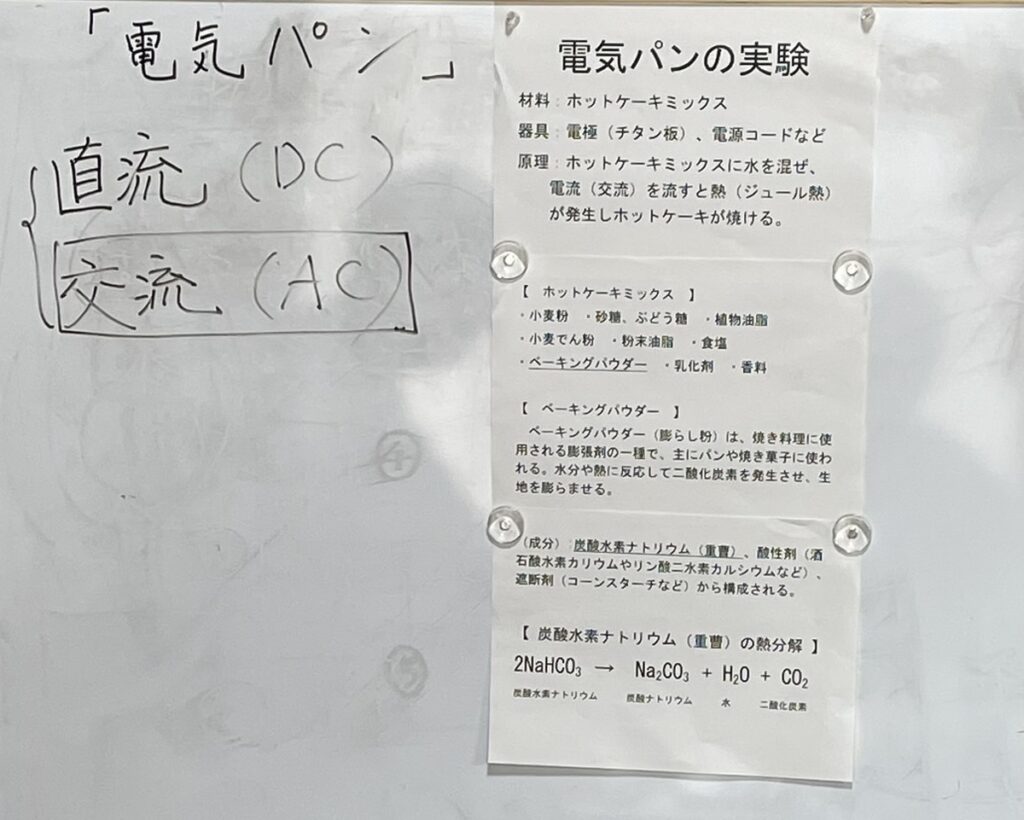 「電気パン」
直流(DC)
交流(AC)
④
⑤
電気パンの実験
材料:ホットケーキミックス
器具:電極(チタン板)、電源コードなど
原理:ホットケーキミックスに水を混ぜ、
電流(交流)を流すと熱(ジュール熱)
が発生しホットケーキが焼ける。
【 ホットケーキミックス 】
・小麦粉 ・砂糖、ぶどう糖 ・植物油脂
・小麦でん粉 ・粉末油脂 ・食塩
・ベーキングパウダー ・乳化剤 ・香料
【 ベーキングパウダー 】
ベーキングパウダー(膨らし粉)は、焼き料理に使
用される膨張剤の一種で、主にパンや焼き菓子に使わ
れる。水分や熱に反応して二酸化炭素を発生させ、生
地を膨らませる。
(成分):炭酸水素ナトリウム(重曹)、酸性剤(酒
石酸水素カリウムやリン酸二水素カルシウムなど)、
遮断剤(コーンスターチなど)から構成される。
【 炭酸水素ナトリウム(重曹)の熱分解 】
2NaHCO₃ → Na₂CO₃ + H₂O + CO₂
炭酸水素ナトリウム 炭酸ナトリウム 水 二酸化炭素